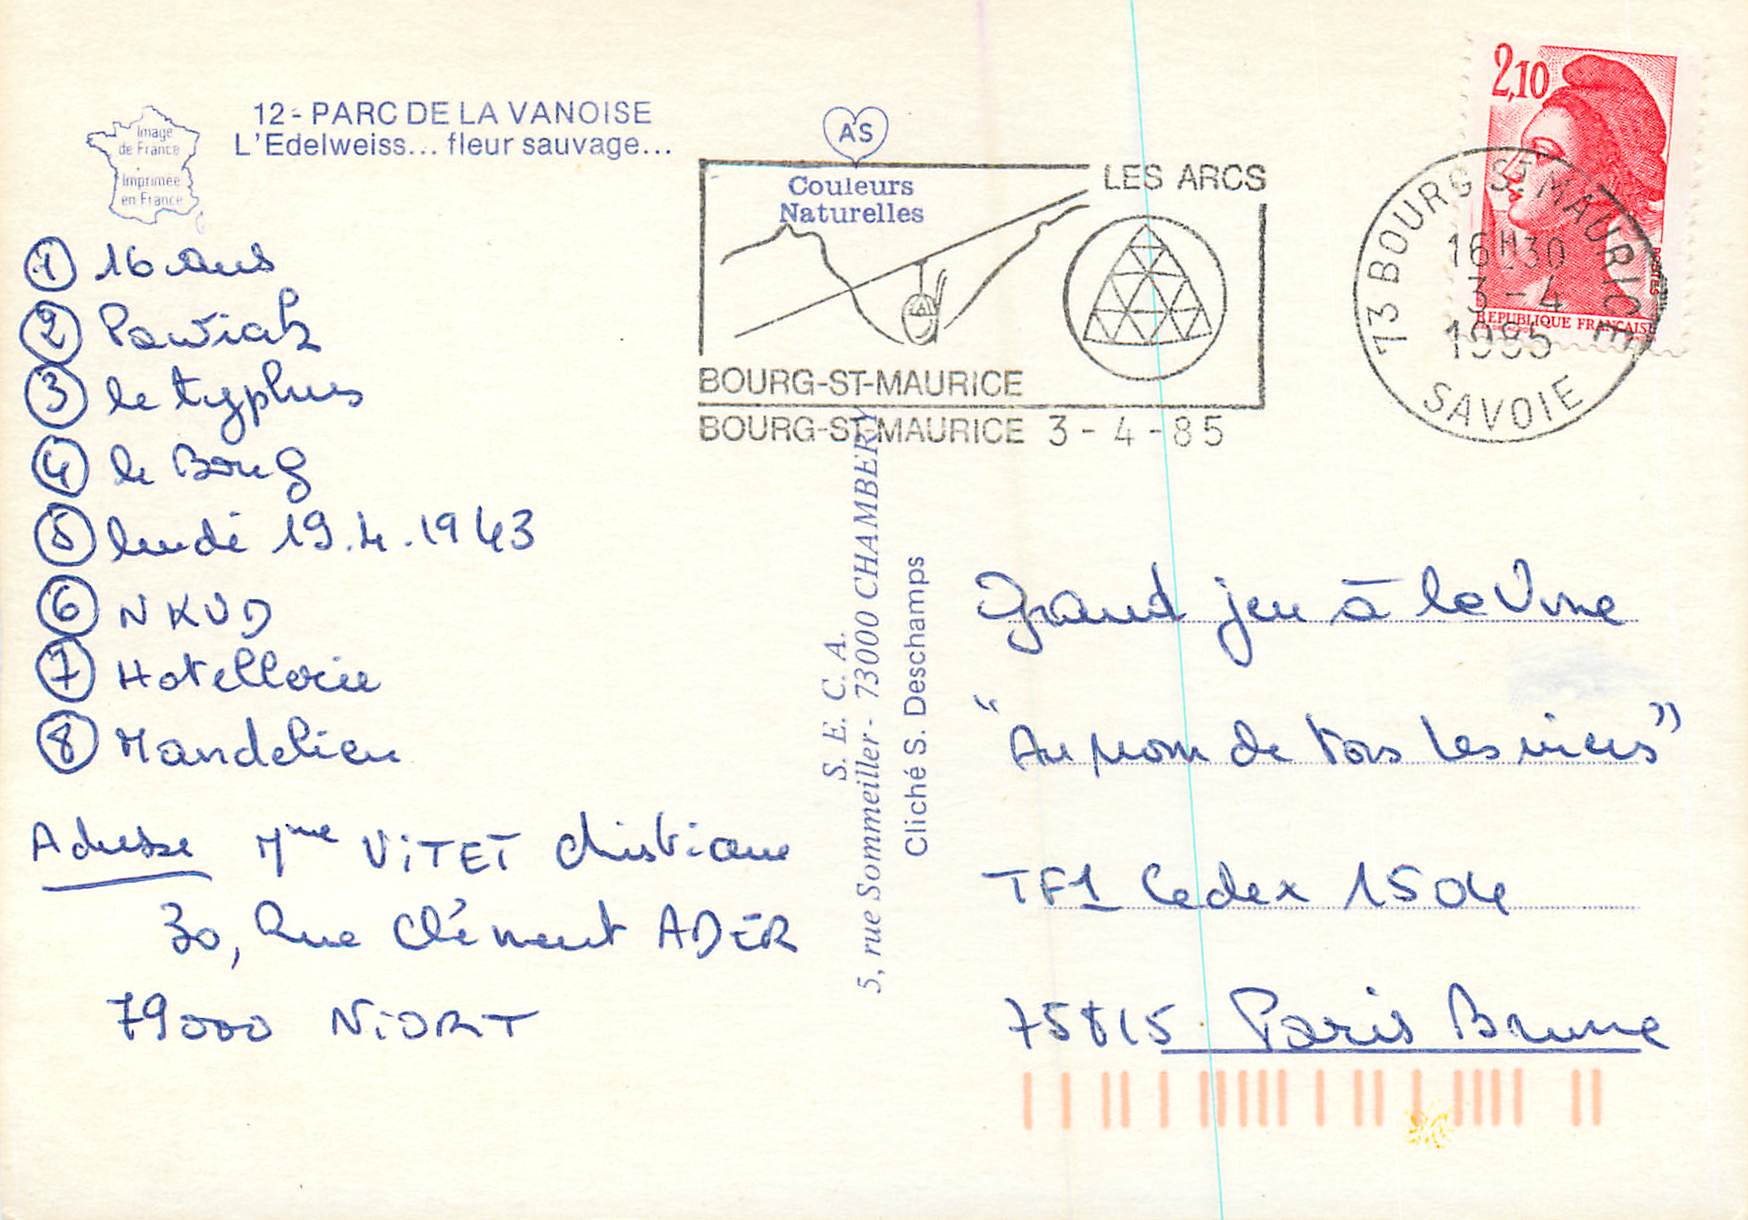 12 - PARC DE LA VANOISE
L'Edelweiss... fleur sauvage...
Image
de France
Imprimée
en France
AS
Couleurs
Naturelles
LES ARCS
BOURG-ST-MAURICE
BOURG-ST-MAURICE 3 - 4 - 85
2,10
POSTES
REPUBLIQUE FRANÇAISE
73 BOURG ST MAURICE
16H30
3 - 4
1985
SAVOIE
① 16 ans
② Pawiak
③ le typhus
④ le Bourg
⑤ lundi 19.4.1943
⑥ NKVD
⑦ Hotellerie
⑧ Mandelieu
Adresse Mme ViTET Christiane
30, Rue Clément ADER
79000 NiORT
S. E. C. A.
5, rue Sommeiller - 73000 CHAMBERY
Cliché S. Deschamps
Grand jeu à la Une
"Au nom de tous les miens"
TF1 Cedex 1504
75815 Paris Brune